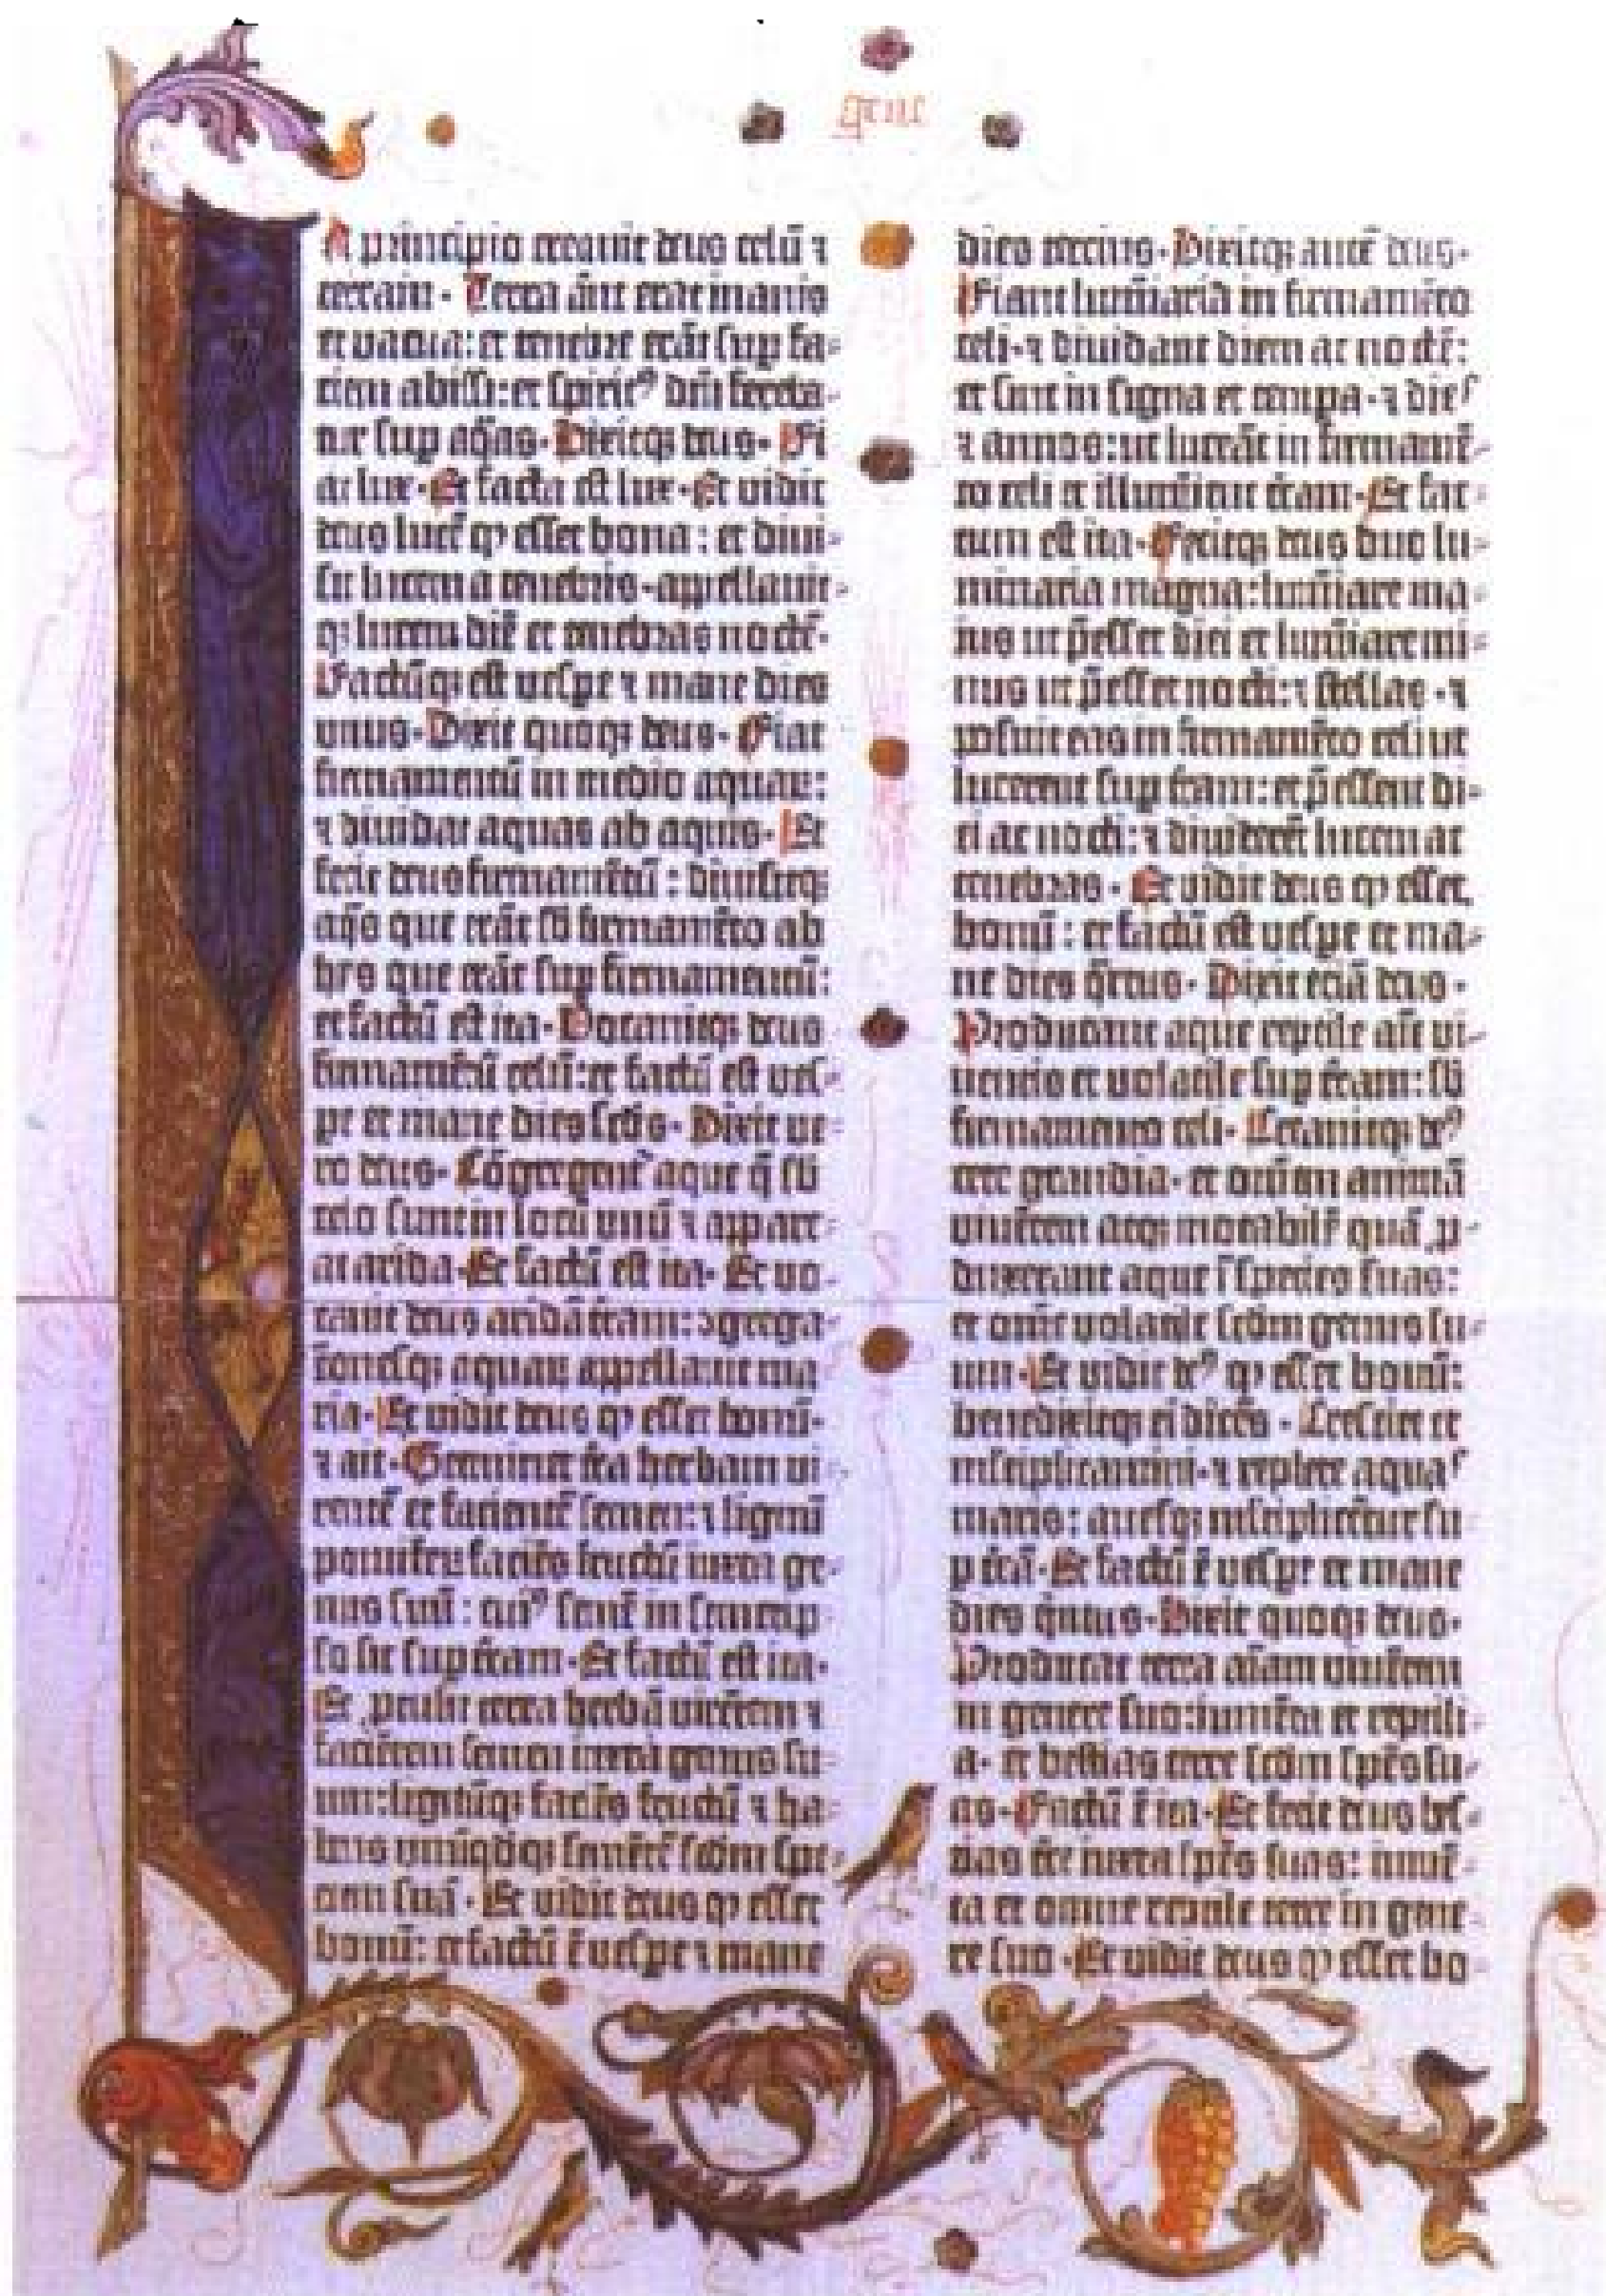 Gene
N principio creauit deus celū ⁊
terram. Terra aūt erat inanis
et vacua: et tenebre erāt sup fa-
ciem abissi: et spiritꝰ dn̄i fereba-
tur sup aq̄as. Dixitqꝫ deus. Fi
at lux. Et facta est lux. Et vidit
deus lucē qꝙ esset bona: et diui-
sit lucem a tenebris. appellauit-
qꝫ lucem diē et tenebras noctē.
Factūqꝫ est vespe ⁊ mane dies
vnus. Dixit quoqꝫ deus. Fiat
firmamentū in medio aquaꝝ:
⁊ diuidat aquas ab aquis. Et
fecit deus firmamētū: diuisitqꝫ
aq̄s que erāt sb̄ firmamēto ab
hijs que erāt sup firmamentū:
et factū est ita. Vocauitqꝫ deus
firmamētū celū: et factū est ves-
pe et mane dies secūs. Dixit ve-
ro deus. Cōgregent᷑ aque q̄ sb̄
celo sunt in locū vnū ⁊ appare-
at arida. Et factū est ita. Et vo-
cauit deus aridā t̄ram: ꝯgrega-
tōnesqꝫ aquaꝝ appellauit ma
ria. Et vidit deus ꝙ esset bonū.
⁊ ait. Germinet t̄ra herbam vi-
rentē et facientē semen: ⁊ lignū
pomiferū faciēs fructū iuxta ge-
nus suū: cuiꝰ semē in semetip-
so sit sup t̄ram. Et factū est ita.
Et ꝓtulit terra herbā virētem ⁊
faciētem semen iuxta genus su-
um: lignūqꝫ faciēs fructū ⁊ ha-
bens vnūqdqꝫ semētē scdm spe-
ciem suā. Et vidit deus ꝙ esset
bonū: et factū ē vespe ⁊ mane
dies tercius. Dixitqꝫ autē deus.
Fiant lumīaria in firmamēto
celi. ⁊ diuidant diem ac noctē:
et sint in signa et tempa. ⁊ dies
⁊ annos: ut luceāt in firmamē-
to celi et illumīent t̄ram. Et fac-
tum est ita. Fecitqꝫ deus duo lu-
minaria magna: lumīare ma-
ius ut p̄esset diei et lumīare mi-
nus ut p̄esset nocti: ⁊ stellas. ⁊
posuit eas in firmamēto celi ut
lucerent sup t̄ram: et p̄essent di-
ei ac nocti: ⁊ diuiderēt lucem ac
tenebras. Et vidit deus ꝙ esset
bonū: et factū est vespe et ma-
ne dies q̄rtus. Dixit eciā deus.
Producant aque reptile aīe vi-
uentis et volatile sup t̄ram: sb̄
firmamento celi. Creauitqꝫ deꝰ
cete grandia. et om̄em animā
viuētem atqꝫ motabilē quā ꝓ-
duxerant aque ī species suas:
et om̄e volatile scdm genus su-
um. Et vidit deꝰ ꝙ esset bonū:
benedixitqꝫ ei dicēs. Crescite et
mltiplicamini. ⁊ replete aquas
maris: auesqꝫ mltiplicētur su-
p t̄rā. Et factū ē vespe et mane
dies q̄ntus. Dixit quoqꝫ deus.
Producat terra aīam viuētem
in genere suo: iumēta et reptili-
a. et bestias terre scdm spēs su-
as. Factū ē ita. Et fecit deus bes-
tias t̄re iuxta spēs suas: iumē-
ta et omne reptile terre in gene-
re suo. Et vidit deus ꝙ esset bo-